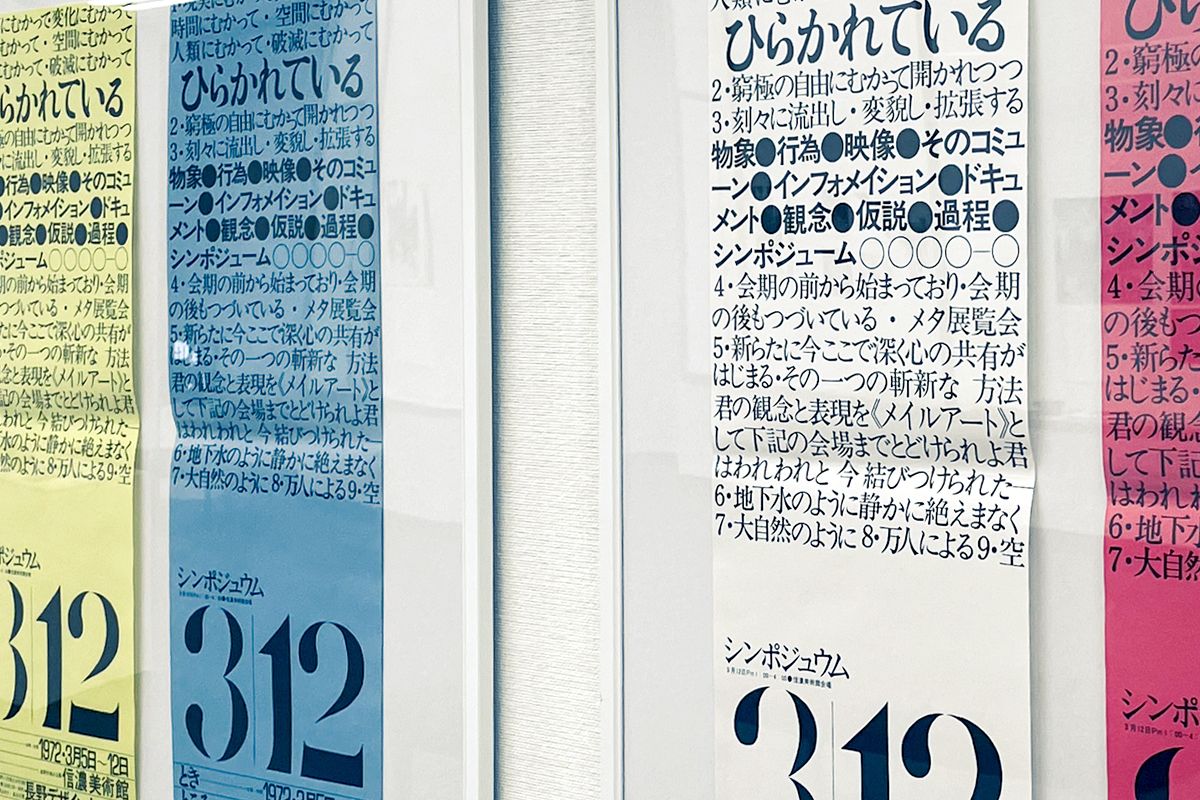 にむかって変化にむかって
にむかって・空間にむかって
むかって・破滅にむかって
らかれている
の自由にむかって開かれつつ
に流出し・変貌し・拡張する
●行為●映像●そのコミュ
●インフォメイション●ドキュ
●観念●仮説●過程●
ポジューム○○○○−○
の前から始まっており・会期
つづいている・メタ展覧会
たに今ここで深く心の共有が
・その一つの斬新な 方法
念と表現を《メイルアート》と
記の会場までとどけられよ君
われと今結びつけられた
水のように静かに絶えまなく
然のように8・万人による9・空
ポジュウム
312
1972・3月5日〜12日
信濃美術館
長野デザイン
時間にむかって・空間にむかって
人類にむかって・破滅にむかって
ひらかれている
2・窮極の自由にむかって開かれつつ
3・刻々に流出し・変貌し・拡張する
物象●行為●映像●そのコミュ
ーン●インフォメイション●ドキュ
メント●観念●仮説●過程●
シンポジューム○○○○−○
4・会期の前から始まっており・会期
の後もつづいている・メタ展覧会
5・新らたに今ここで深く心の共有が
はじまる・その一つの斬新な 方法
君の観念と表現を《メイルアート》と
して下記の会場までとどけられよ君
はわれわれと今結びつけられた
6・地下水のように静かに絶えまなく
7・大自然のように8・万人による9・空
シンポジュウム
312
とき
1972・3月5日
ひらかれている
2・窮極の自由にむかって開かれつつ
3・刻々に流出し・変貌し・拡張する
物象●行為●映像●そのコミュ
ーン●インフォメイション●ドキュ
メント●観念●仮説●過程●
シンポジューム○○○○−○
4・会期の前から始まっており・会期
の後もつづいている・メタ展覧会
5・新らたに今ここで深く心の共有が
はじまる・その一つの斬新な 方法
君の観念と表現を《メイルアート》と
して下記の会場までとどけられよ君
はわれわれと 今 結びつけられた―
6・地下水のように静かに絶えまなく
7・大自然のように8・万人による9・空
シンポジュウム
312
ひら
2・窮極
3・刻々
物象●
ーン●
メント
シンポジ
4・会期
の後も
5・新らた
はじまる・
君の観
して下記
はわれわ
6・地下
7・大自然
シンポ